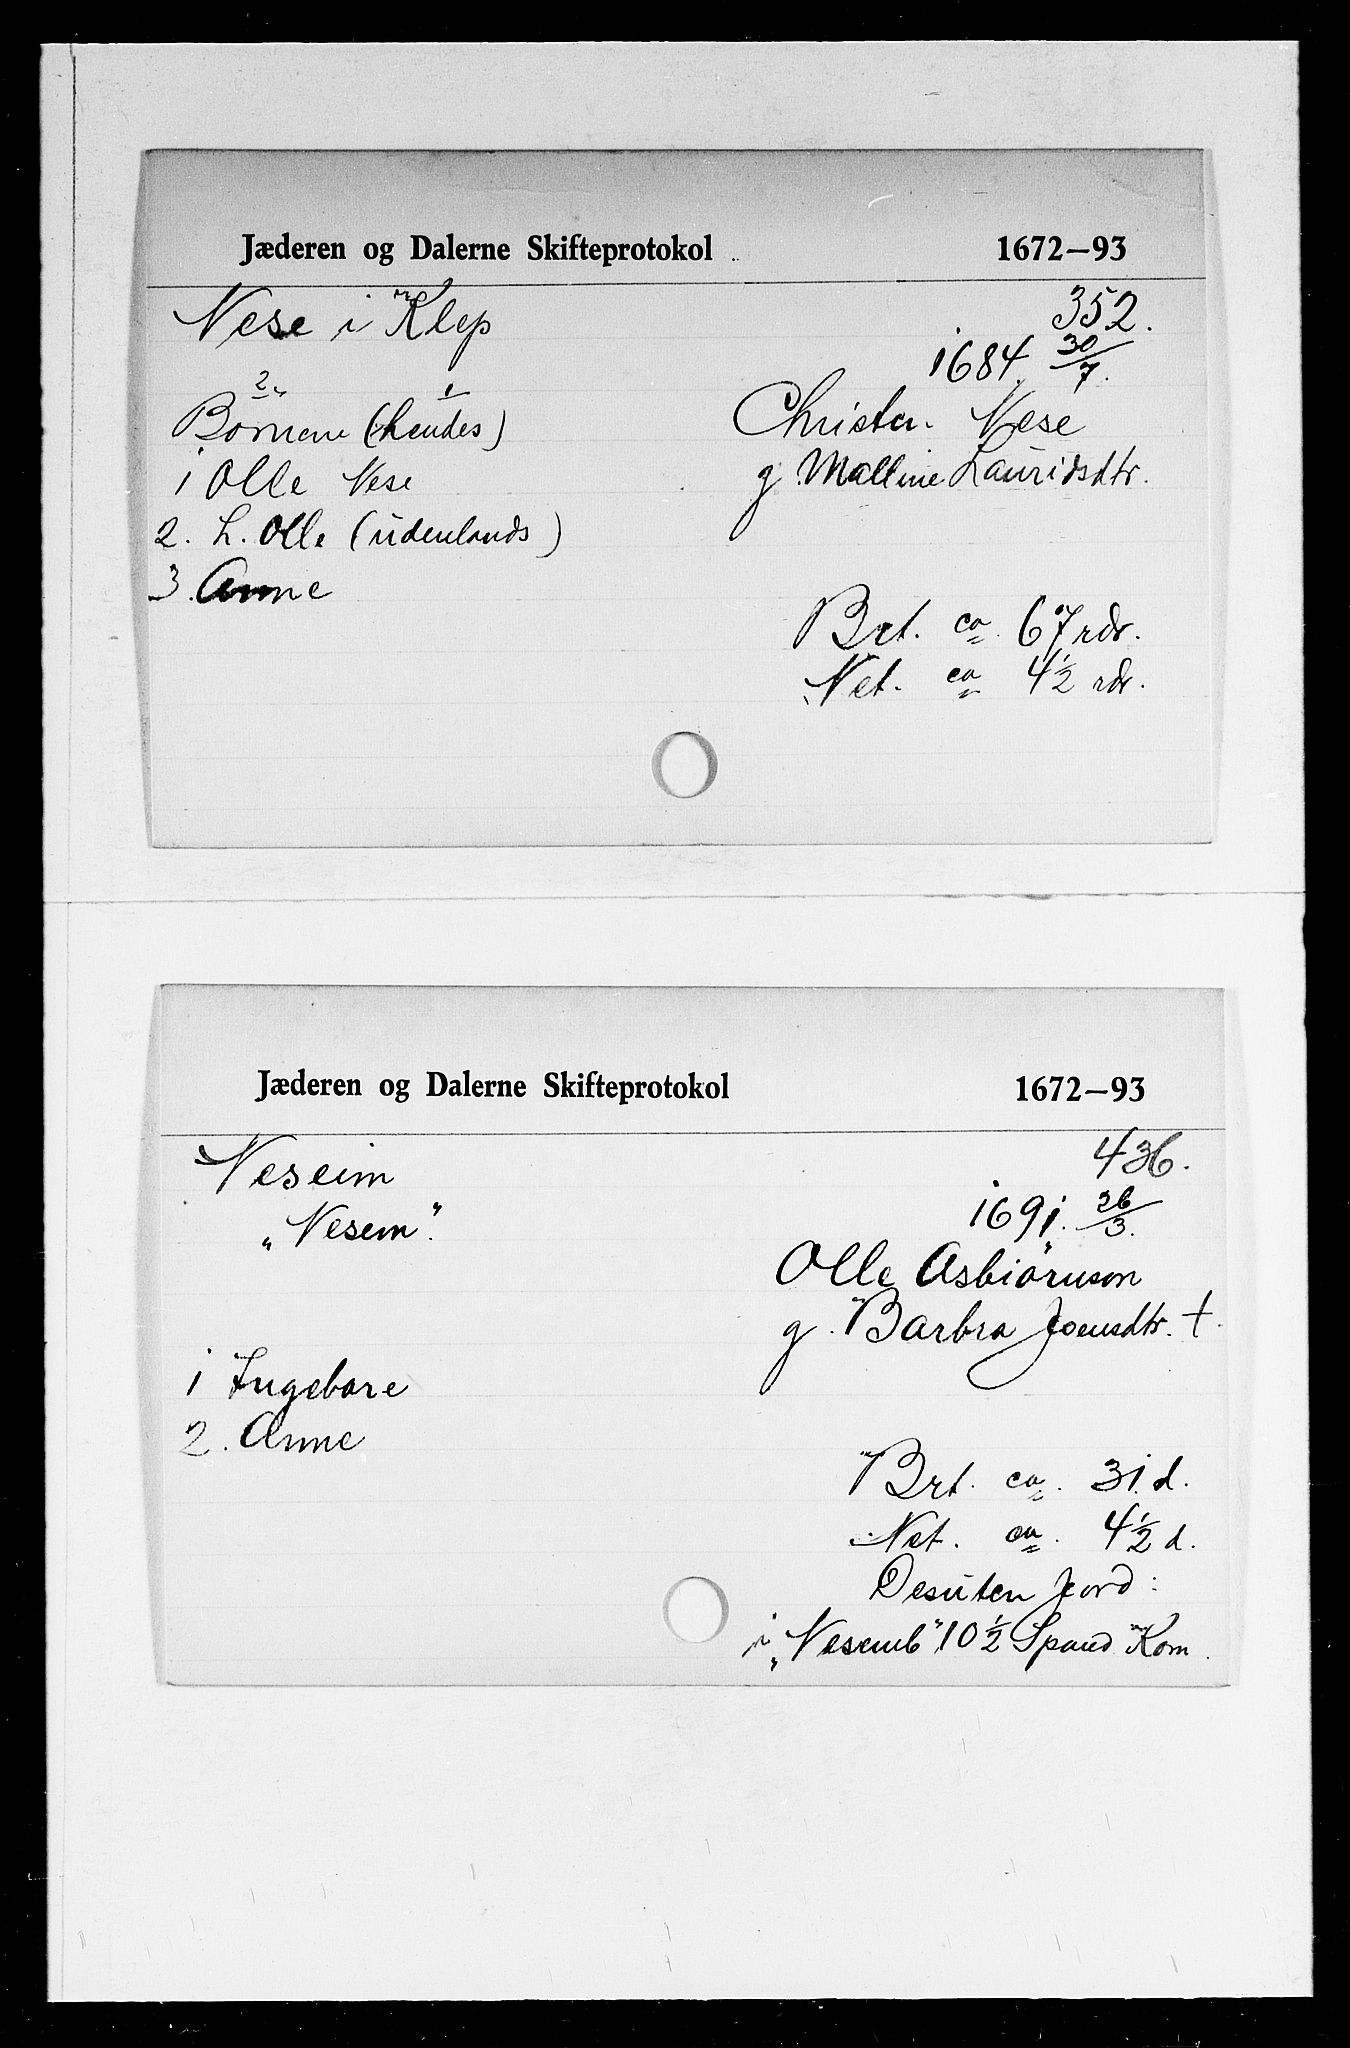 Jæderen og Dalerne Skifteprotokol 1672–93
Nese i Klep 352.
1684. 30/7.
2 1
Börnene (hendes) Christen. Nese
g. Malline Lauridsdtr.
1 Olle Nese
2. L. Olle (udenlands)
3. Anne
Brt. ca. 67 rdr.
Net. ca 4½ rdr.
Jæderen og Dalerne Skifteprotokol 1672–93
Neseim 436.
„Nesem". 1691. 26/3.
Olle Asbiörnson
g. Barbra Joensdtr. †.
1 Ingebore
2. Anne
Brt. ca. 31. d.
Net. ca. 4½ d.
Desuten jord:
i „Nesemb" 10½ Spand Korn.